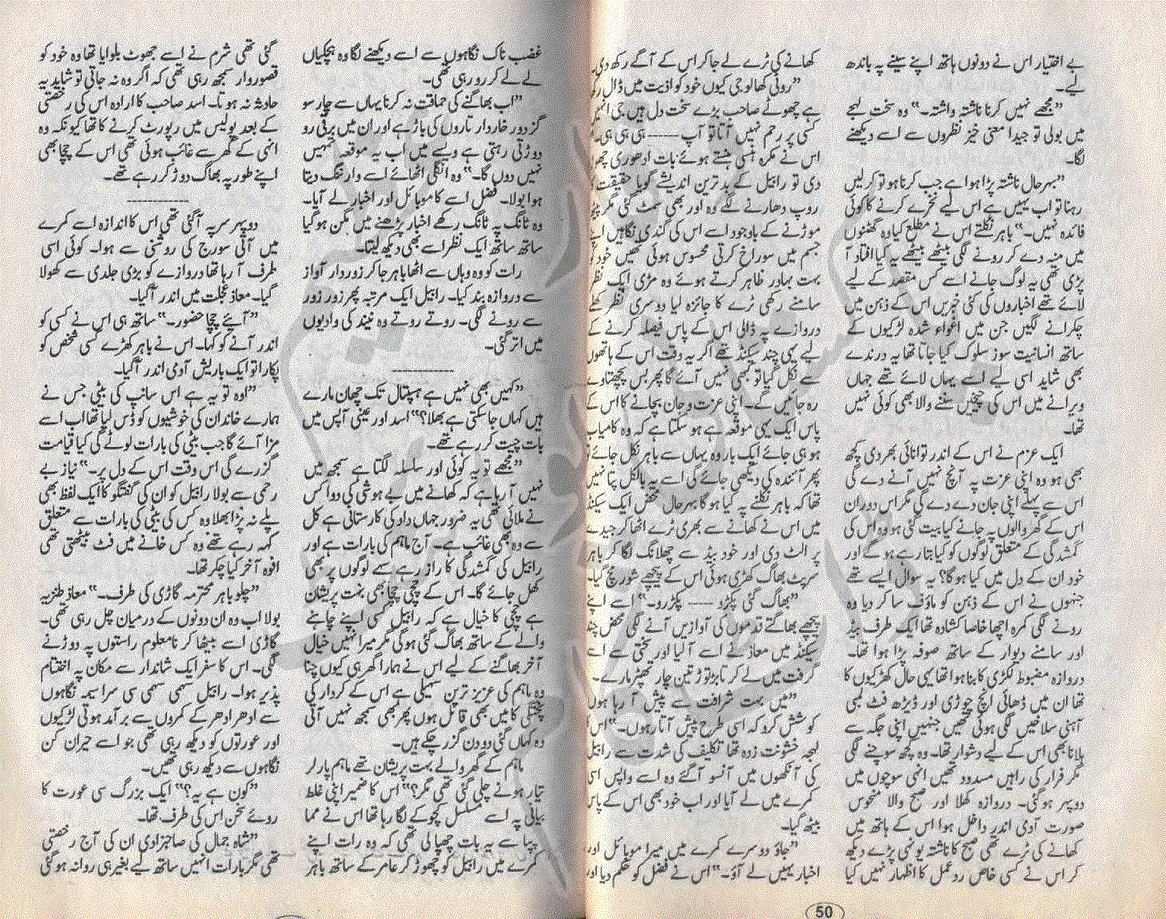 بے اختیار اس نے دونوں ہاتھ اپنے سینے پہ باندھ
لیے۔
”مجھے نہیں کرنا ناشتہ واشتہ۔“ وہ سخت لہجے
میں بولی تو جیدا معنی خیز نظروں سے اسے دیکھنے
لگا۔
”بہرحال ناشتہ پڑا ہوا ہے جب کرنا ہو تو کر لیں
رہنا تو اب یہیں ہے اس لیے نخرے کرنے کا کوئی
فائدہ نہیں۔“ باہر نکلتے اس نے مطلع کیا وہ گھٹنوں
میں منہ دے کر رونے لگی بیٹھے بیٹھے یہ کیا افتاد آ
پڑی تھی یہ لوگ جانے اسے کس مقصد کے لیے
لائے تھے اخباروں کی کئی خبریں اس کے ذہن میں
چکرانے لگیں جن میں اغواء شدہ لڑکیوں کے
ساتھ انسانیت سوز سلوک کیا جاتا تھا یہ درندے
بھی شاید اسی لیے اسے یہاں لائے تھے جہاں
ویرانے میں اس کی چیخیں سننے والا بھی کوئی نہیں
تھا۔
ایک عزم نے اس کے اندر توانائی بھر دی کچھ
بھی ہو وہ اپنی عزت پہ آنچ نہیں آنے دے گی
اس سے پہلے اپنی جان دے دے گی مگر اس دوران
اس کے گھر والوں پہ جانے کیا بیت گئی ہو وہ اس کی
گمشدگی کے متعلق لوگوں کو کیا بتا رہے ہوں گے اور
خود ان کے دل میں کیا ہو گا؟ یہ سوال ایسے تھے
جنہوں نے اس کے ذہن کو ماؤف سا کر دیا وہ
رونے لگی کمرہ اچھا خاصا کشادہ تھا ایک طرف بیڈ
اور سامنے دیوار کے ساتھ صوفہ پڑا ہوا تھا۔
دروازہ مضبوط لکڑی کا بنا ہوا تھا یہی حال کھڑکیوں کا
تھا ان میں ڈھائی انچ چوڑی اور ڈیڑھ فٹ لمبی
آہنی سلاخیں لگی ہوئی تھیں جنہیں اپنی جگہ سے
ہلانا بھی اس کے لیے دشوار تھا۔ وہ کچھ سوچنے لگی
مگر فرار کی راہیں مسدود تھیں انہی سوچوں میں
دوپہر ہو گئی۔ دروازہ کھلا اور صبح والا منحوس
صورت آدمی اندر داخل ہوا اس کے ہاتھ میں
کھانے کی ٹرے تھی صبح کا ناشتہ یونہی پڑے دیکھ
کر اس نے کسی خاص ردعمل کا اظہار نہیں کیا
کھانے کی ٹرے لے جا کر اس کے آگے رکھ دی۔
”روٹی کھا لو جی کیوں خود کو اذیت میں ڈال
ہے چھوٹے صاحب بڑے سخت دل ہیں جی
کسی پر رحم نہیں آتا تو آپ ---- ہی ہی ہی
اس نے مکرہ ہنسی ہنستے ہوئے بات ادھوری
دی تو رابیل کے بدترین اندیشے گویا حقیقت
روپ دھارنے لگے وہ اور بھی سمٹ گئی
موڑنے کے باوجود اسے اس کی گندی نگاہیں
جسم میں سوراخ کرتی محسوس ہوئی تھیں خود
بہت بہادر ظاہر کرتے ہوئے وہ مڑی ایک
سامنے رکھی ٹرے کا جائزہ لیا دوسری نظر
دروازے پہ ڈالی اس کے پاس فیصلہ کرنے کے
لیے یہی چند سیکنڈ تھے اگر یہ وقت اس کے ہاتھوں
سے نکل گیا تو کبھی نہیں آئے گا پھر بس پچھتاوے
رہ جائیں گے۔ اپنی عزت و جان بچانے کا اس کے
پاس ایک یہی موقعہ ہے ہو سکتا ہے کہ وہ کامیاب
ہو ہی جائے ایک بار وہ یہاں سے باہر نکل جائے
پھر آئندہ کی دیکھی جائے گی اسے یہ بالکل پتا نہیں
تھا کہ باہر نکلنے پہ کیا ہو گا بہرحال محض ایک سیکنڈ
میں اس نے کھانے سے بھری ٹرے اٹھا کر جیدے
پر الٹ دی اور خود بیڈ سے چھلانگ لگا کر باہر
سرپٹ بھاگ کھڑی ہوئی اس کے پیچھے شور مچ گیا۔
”بھاگ گئی پکڑو ---- پکڑو۔“ اسے اپنے
پیچھے بھاگتے قدموں کی آوازیں آنے لگی محض چند
سیکنڈ میں معاذ نے اسے آ لیا اور سختی سے اسے
گرفت میں لے کر تابڑ توڑ تین چار تھپڑ مارے۔
”میں بہت شرافت سے پیش آ رہا ہوں
کوشش کرو کہ اسی طرح پیش آتا رہوں۔“ اس
لہجہ خشونت زدہ تھا تکلیف کی شدت سے رابیل
کی آنکھوں میں آنسو آ گئے وہ اسے واپس اسی
کمرے میں لے آیا اور اب خود بھی اس کے پاس
بیٹھ گیا۔
”جاؤ دوسرے کمرے میں میرا موبائل اور
اخبار یہیں لے آؤ۔“ اس نے فضل کو حکم دیا اور
50
غضب ناک نگاہوں سے اسے دیکھنے لگا وہ ہچکیاں
لے لے کر رو رہی تھی۔
”اب بھاگنے کی حماقت نہ کرنا یہاں سے چار سو
گز دور خاردار تاروں کی باڑ ہے اور ان میں برقی رو
دوڑتی رہتی ہے ویسے میں اب یہ موقعہ تمہیں
نہیں دوں گا۔“ وہ انگلی اٹھائے اسے وارننگ دیتا
ہوا بولا۔ فضل اسے کا موبائل اور اخبار لے آیا۔
وہ ٹانگ پہ ٹانگ رکھے اخبار پڑھنے میں مگن ہو گیا
ساتھ ساتھ ایک نظر اسے بھی دیکھ لیتا۔
رات کو وہ وہاں سے اٹھا باہر جا کر زوردار آواز
سے دروازہ بند کیا۔ رابیل ایک مرتبہ پھر زور زور
سے رونے لگی۔ روتے روتے وہ نیند کی وادیوں
میں اتر گئی۔
------------
”کہیں بھی نہیں ہے ہسپتال تک چھان مارے
ہیں کہاں جا سکتی ہے بھلا؟“ اسد اور عینی آپس میں
بات چیت کر رہے تھے۔
”مجھے تو یہ کوئی اور سلسلہ لگتا ہے سمجھ میں
نہیں آ رہا ہے کہ کھانے میں بے ہوشی کی دوا کس
نے ملائی تھی یہ ضرور جہاں داد کی کارستانی ہے کل
سے وہ بھی غائب ہے۔ آج ماہم کی بارات ہے اور
رابیل کی گمشدگی کا راز رہے سہے لوگوں پر بھی
کھل جائے گا۔ اس کے چچی چچا بھی بہت پریشان
ہے چچی کا خیال ہے کہ رابیل کسی اپنے چاہنے
والے کے ساتھ بھاگ گئی ہو گی مگر میرا نہیں خیال
آخر بھاگنے کے لیے اس نے ہمارا گھر ہی کیوں چنا
وہ ماہم کی عزیز ترین سہیلی ہے اس کے کردار کی
پختگی کا میں بھی قائل ہوں پھر بھی سمجھ نہیں آتی
وہ کہاں گئی دو دن گزر چکے ہیں۔
ماہم کے گھر والے بہت پریشان تھے ماہم پارلر
تیار ہونے چلی گئی تھی مگر؟“ اس کا ضمیر اپنی غلط
بیانی پہ اسے مسلسل کچوکے لگا رہا تھا اس نے مما
پپا سے یہ بات چھپا لی تھی کہ وہ رات اپنے
کمرے میں رابیل کو چھوڑ کر عامر کے ساتھ باہر
گئی تھی شرم نے اسے جھوٹ بلوایا تھا وہ خود کو
قصوروار سمجھ رہی تھی کہ اگر وہ نہ جاتی تو شاید یہ
حادثہ نہ ہوتا۔ اسد صاحب کا ارادہ اس کی رخصتی
کے بعد پولیس میں رپورٹ کرنے کا تھا کیونکہ وہ
انہی کے گھر سے غائب ہوئی تھی اس کے چچا بھی
اپنے طور پہ بھاگ دوڑ کر رہے تھے۔
------------
دوپہر سر پہ آ گئی تھی اس کا اندازہ اسے کمرے
میں آئی سورج کی روشنی سے ہوا۔ کوئی اسی
طرف آ رہا تھا دروازے کو بڑی جلدی سے کھولا
گیا۔ معاذ عجلت میں اندر آ گیا۔
”آیئے چچا حضور۔“ ساتھ ہی اس نے کسی کو
اندر آنے کو کہا۔ اس نے باہر کھڑے کسی شخص کو
پکارا تو ایک باریش آدمی اندر آ گیا۔
”اوہ تو یہ ہے اس سانپ کی بیٹی جس نے
ہمارے خاندان کی خوشیوں کو ڈس لیا تھا اب اسے
مزا آئے گا جب بیٹی کی بارات لوٹے گی کیا قیامت
گزرے گی اس وقت اس کے دل پر۔“ نیاز بے
رحمی سے بولا رابیل کو ان کی گفتگو کا ایک لفظ بھی
پلے نہ پڑا بھلا وہ کس کی بیٹی کی بارات سے متعلق
کہہ رہے تھے وہ کس خانے میں فٹ بیٹھتی تھی
افوہ آخر کیا چکر تھا۔
”چلو باہر محترمہ گاڑی کی طرف۔“ معاذ طنزیہ
بولا اب وہ ان دونوں کے درمیان چل رہی تھی۔
گاڑی اسے بیٹھا کر نامعلوم راستوں پہ دوڑنے
لگی۔ اس کا سفر ایک شاندار سے مکان پہ اختتام
پذیر ہوا۔ رابیل سہمی سہمی سی سراسیمہ نگاہوں
سے ادھر ادھر کے کمروں سے برآمد ہوتی لڑکیوں
اور عورتوں کو دیکھ رہی تھی جو اسے حیران کن
نگاہوں سے دیکھ رہی تھیں۔
”کون ہے یہ؟“ ایک بزرگ سی عورت کا
روئے سخن اس کی طرف تھا۔
”شاہ جمال کی صاحبزادی ان کی آج رخصتی
تھی مگر بارات انہیں ساتھ لیے بغیر ہی روانہ ہو گئی